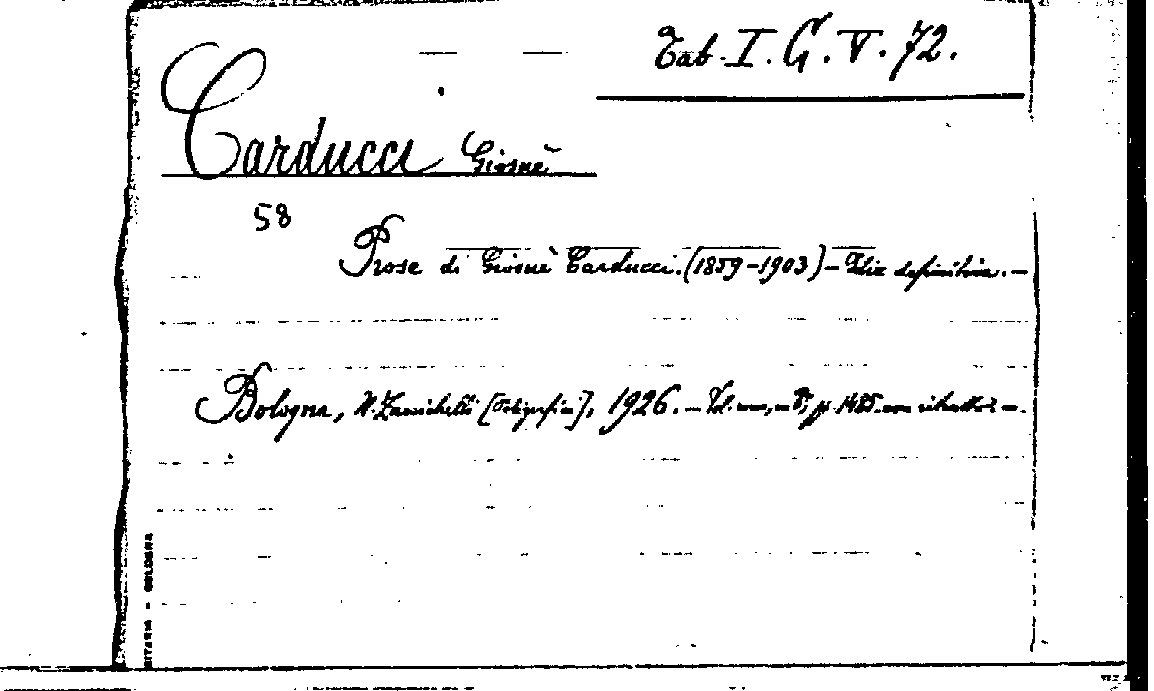 Tab. I. G. V. 72.
Carducci Giosuè
58
Prose di Giosuè Carducci. (1859-1903) - Ediz. definitiva. -
Bologna, N. Zanichelli [Tipografia], 1926. - Vol. uno, in 8°, pp. 1485. con ritratto -
BOLOGNA